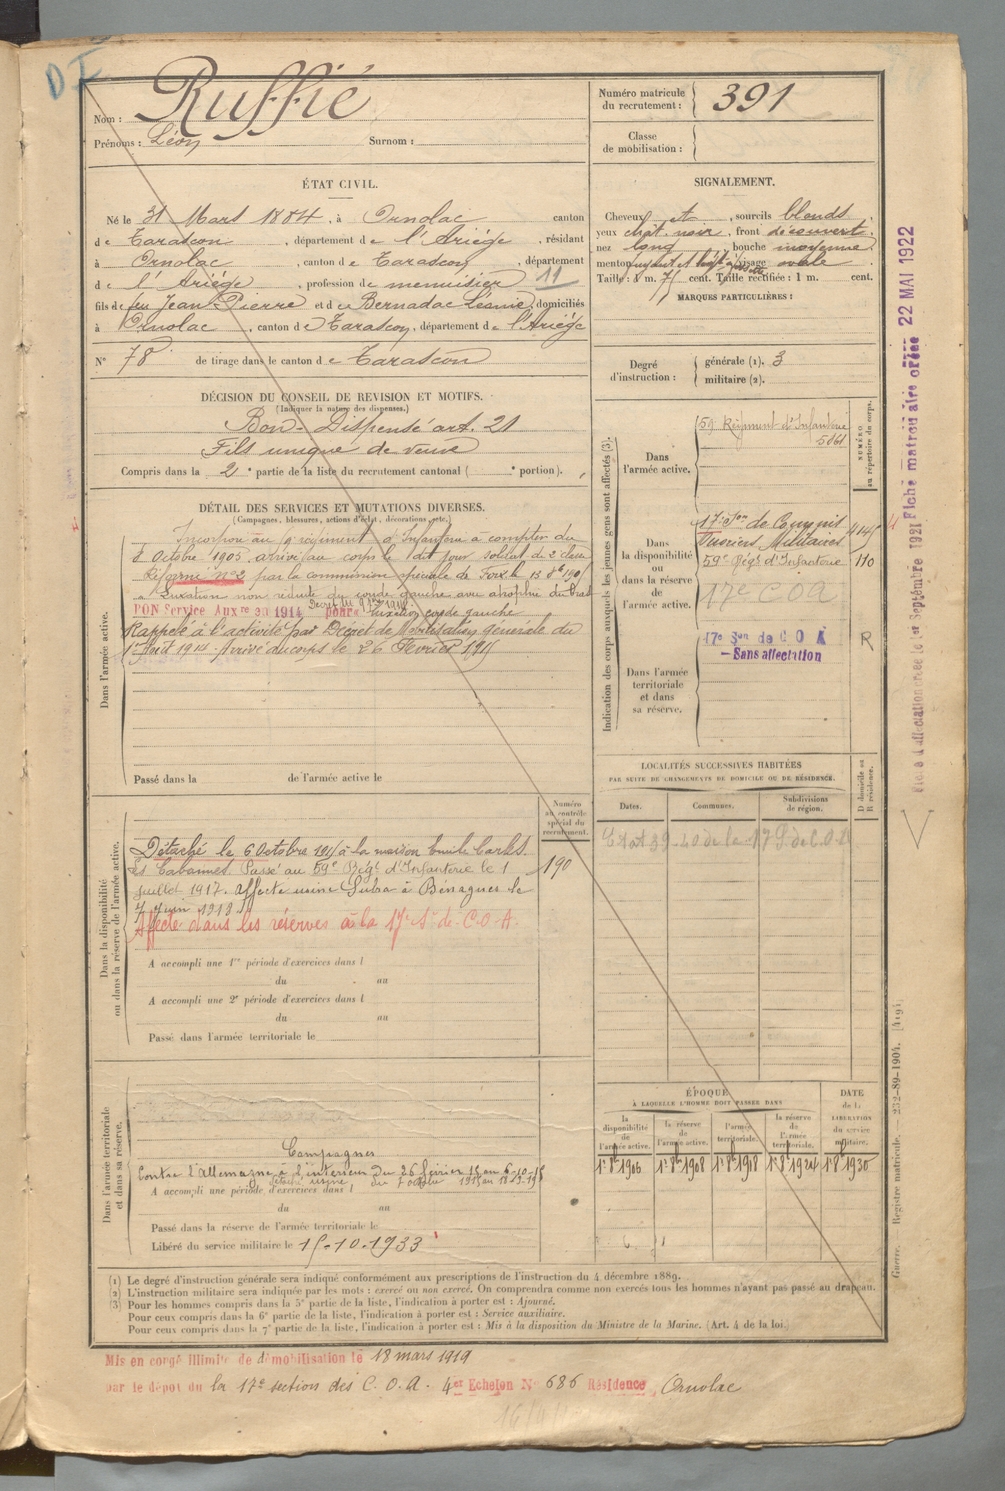 D I
Nom : Ruffié
Prénoms : Léon Surnom :
Numéro matricule du recrutement : 391
Classe de mobilisation :
ÉTAT CIVIL.
Né le 31 Mars 1884, à Ornolac canton
de Tarascon, département de l'Ariége, résidant
à Ornolac, canton de Tarascon, département
de l'Ariége, profession de menuisier 11
fils de feu Jean Pierre et de Bernadac Léonie, domiciliés
à Ornolac, canton de Tarascon, département de l'Ariége
N° 78 de tirage dans le canton de Tarascon
SIGNALEMENT.
Cheveux et, sourcils blonds,
yeux chat. noir, front découvert,
nez long, bouche moyenne,
menton visage ovale
Taille : 1 m. 71 cent. Taille rectifiée : 1 m. cent.
MARQUES PARTICULIÈRES :
Degré d'instruction : générale (1). 3
militaire (2).
DÉCISION DU CONSEIL DE REVISION ET MOTIFS.
(Indiquer la nature des dispenses.)
Bon - Dispensé art. 21
Fils unique de veuve
Compris dans la 2e partie de la liste du recrutement cantonal ( e portion).
DÉTAIL DES SERVICES ET MUTATIONS DIVERSES.
(Campagnes, blessures, actions d'éclat, décorations, etc.)
Dans l'armée active.
Incorporé au régiment d'Infanterie à compter du
8 Octobre 1905. arrivé au corps le dit jour soldat de 2e classe
Réformé n° 2 par la commission spéciale de Foix le 13
Luxation non réduite du coude gauche avec atrophie du bras
BON Service Auxre 1914 pour luxation coude gauche
Rappelé à l'activité par Décret de Mobilisation générale du
1er Août 1914. Arrivé au corps le 26 Février 1915
Passé dans la de l'armée active le
Indication des corps auxquels les jeunes gens sont affectés (3).
NUMÉRO au répertoire du corps.
Dans l'armée active.
59e Régiment d'Infanterie
5861
Dans la disponibilité ou dans la réserve de l'armée active.
17e Son de Commis
Ouvriers Militaires
59e Régt d'Infanterie 110
17e COA
Dans l'armée territoriale et dans sa réserve.
17e Son de C O A R
— Sans affectation
Fiche d'affectation créée le 1er Septembre 1921 Fiche matriculaire créée 22 MAI 1922
LOCALITÉS SUCCESSIVES HABITÉES
PAR SUITE DE CHANGEMENTS DE DOMICILE OU DE RÉSIDENCE.
Dates. Communes. Subdivisions de région. D domicile ou R résidence.
Dans la disponibilité ou dans la réserve de l'armée active.
Numéro au contrôle spécial du recrutement.
190
Détaché le 6 Octobre 1915 à la maison Emile
Les Cabannes. Passé au 59e Régt d'Infanterie le 1
juillet 1917. affecté usine à Bénagues le
7 Juin 1918
Affecté dans les réserves à la 17e Son de C.O.A.
A accompli une 1re période d'exercices dans l
du au
A accompli une 2e période d'exercices dans l
du au
Passé dans l'armée territoriale le
Dans l'armée territoriale et dans sa réserve.
Campagnes
Contre l'Allemagne à l'intérieur du 26 février 15 au 6-10-15
A accompli une période d'exercices dans l
du au
Passé dans la réserve de l'armée territoriale le
Libéré du service militaire le 15-10-1933
ÉPOQUE
À LAQUELLE L'HOMME DOIT PASSER DANS
la disponibilité de l'armée active. la réserve de l'armée active. l'armée territoriale. la réserve de l'armée territoriale.
DATE de la LIBÉRATION du service militaire.
1er 8bre 1906 1er 8bre 1908 1er 8bre 1918 1er 8bre 1924 1er 8bre 1930
(1) Le degré d'instruction générale sera indiqué conformément aux prescriptions de l'instruction du 4 décembre 1889.
(2) L'instruction militaire sera indiquée par les mots : exercé ou non exercé. On comprendra comme non exercés tous les hommes n'ayant pas passé au drapeau.
(3) Pour les hommes compris dans la 5e partie de la liste, l'indication à porter est : Ajourné.
Pour ceux compris dans la 6e partie de la liste, l'indication à porter est : Service auxiliaire.
Pour ceux compris dans la 7e partie de la liste, l'indication à porter est : Mis à la disposition du Ministre de la Marine. (Art. 4 de la loi.)
Guerre. — Registre matricule. — 232-89-1904. [4194]
Mis en congé illimité de démobilisation le 18 mars 1919
par le dépôt du la 17e section des C.O.A. 4e Echelon N° 686 Résidence Ornolac